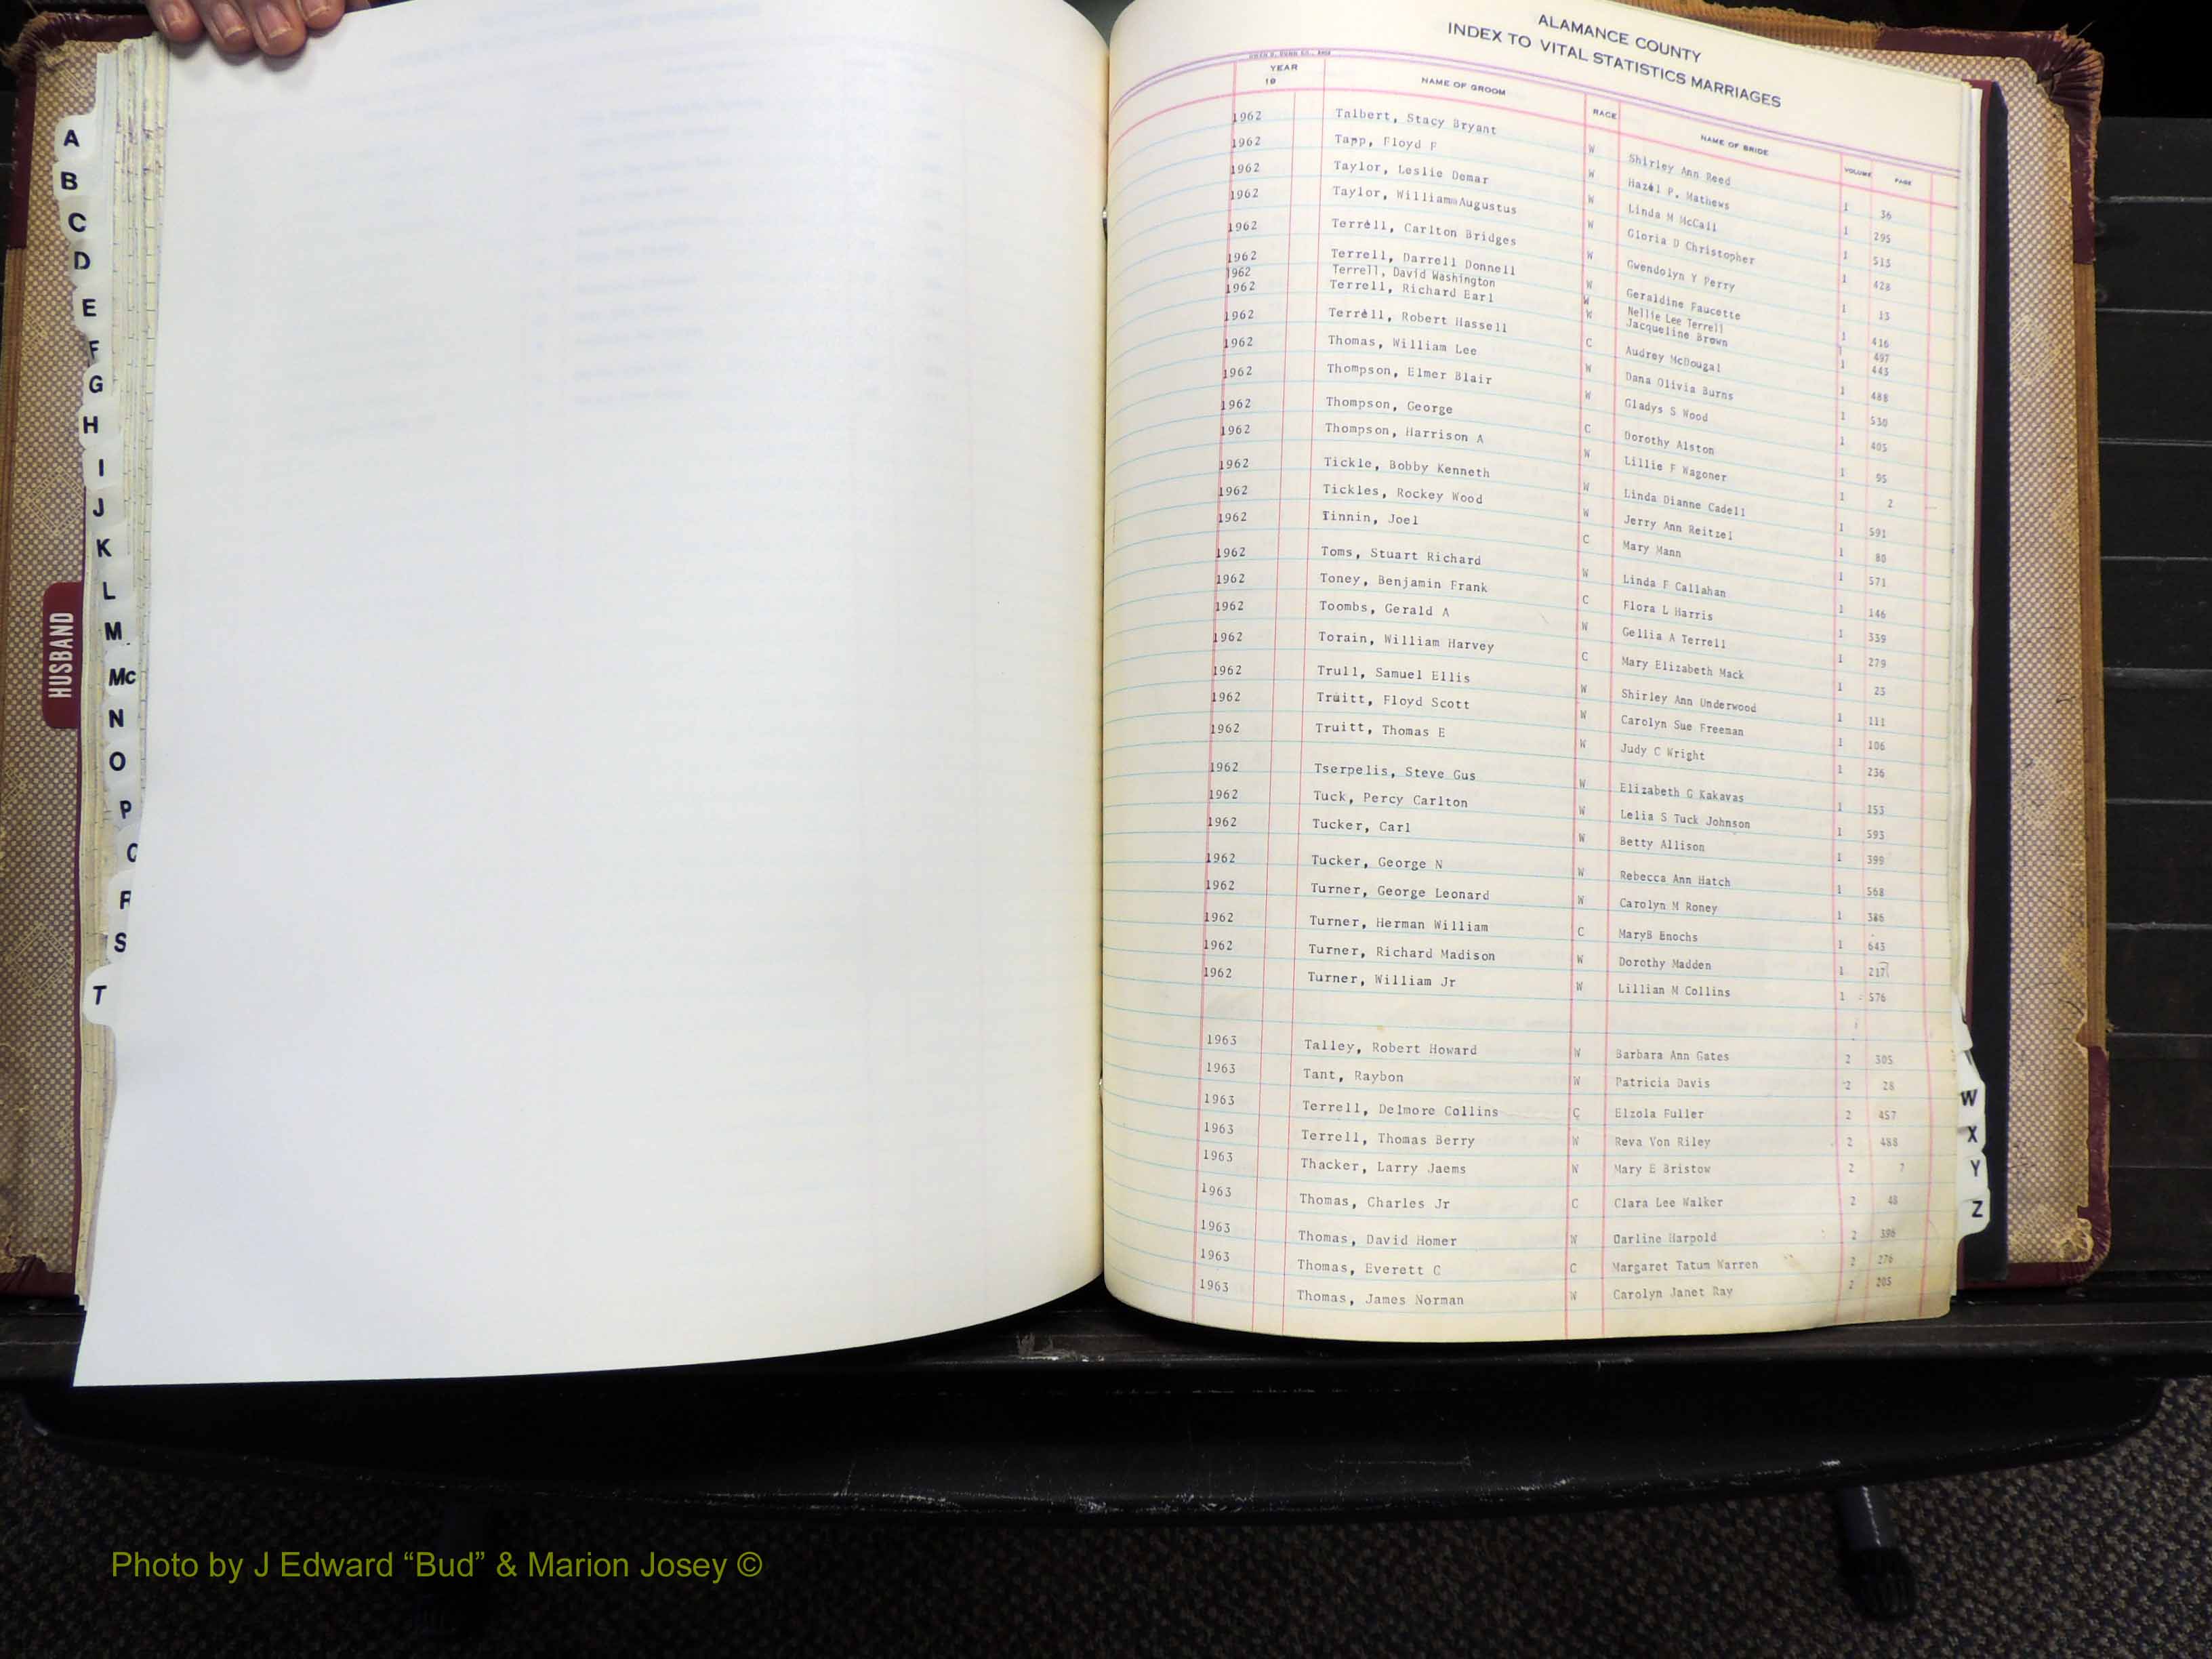 ALAMANCE COUNTY
INDEX TO VITAL STATISTICS MARRIAGES
YEAR 19 NAME OF GROOM RACE NAME OF BRIDE VOLUME PAGE
1962 Talbert, Stacy Bryant W Shirley Ann Reed 1 36
1962 Tapp, Floyd F W Hazel P. Mathews 1 295
1962 Taylor, Leslie Demar W Linda M McCall 1 513
1962 Taylor, William Augustus W Gloria D Christopher 1 428
1962 Terrell, Carlton Bridges W Gwendolyn Y Perry 1 13
1962 Terrell, Darrell Donnell W Geraldine Faucette 1 416
1962 Terrell, David Washington W Nellie Lee Terrell 1 497
1962 Terrell, Richard Earl W Jacqueline Brown 1 443
1962 Terrell, Robert Hassell C Audrey McDougal 1 488
1962 Thomas, William Lee W Dana Olivia Burns 1 530
1962 Thompson, Elmer Blair W Gladys S Wood 1 405
1962 Thompson, George C Dorothy Alston 1 95
1962 Thompson, Harrison A W Lillie F Wagoner 1 2
1962 Tickle, Bobby Kenneth W Linda Dianne Cadell 1 591
1962 Tickles, Rockey Wood W Jerry Ann Reitzel 1 80
1962 Tinnin, Joel C Mary Mann 1 571
1962 Toms, Stuart Richard W Linda F Callahan 1 146
1962 Toney, Benjamin Frank C Flora L Harris 1 339
1962 Toombs, Gerald A W Gellia A Terrell 1 279
1962 Torain, William Harvey C Mary Elizabeth Mack 1 23
1962 Trull, Samuel Ellis W Shirley Ann Underwood 1 111
1962 Truitt, Floyd Scott W Carolyn Sue Freeman 1 106
1962 Truitt, Thomas E W Judy C Wright 1 236
1962 Tserpelis, Steve Gus W Elizabeth G Kakavas 1 153
1962 Tuck, Percy Carlton W Lelia S Tuck Johnson 1 593
1962 Tucker, Carl W Betty Allison 1 399
1962 Tucker, George N W Rebecca Ann Hatch 1 568
1962 Turner, George Leonard W Carolyn M Roney 1 386
1962 Turner, Herman William C MaryB Enochs 1 643
1962 Turner, Richard Madison W Dorothy Madden 1 217
1962 Turner, William Jr W Lillian M Collins 1 576
1963 Talley, Robert Howard W Barbara Ann Gates 2 305
1963 Tant, Raybon W Patricia Davis 2 28
1963 Terrell, Delmore Collins C Elzola Fuller 2 457
1963 Terrell, Thomas Berry W Reva Von Riley 2 488
1963 Thacker, Larry Jaems W Mary E Bristow 2 7
1963 Thomas, Charles Jr C Clara Lee Walker 2 48
1963 Thomas, David Homer W Darline Harpold 2 396
1963 Thomas, Everett C C Margaret Tatum Warren 2 276
1963 Thomas, James Norman W Carolyn Janet Ray 2 205
A
B
C
D
E
F
G
H
I
J
K
L
M
Mc
N
O
P
R
S
T
HUSBAND
W
X
Y
Z
Photo by J Edward “Bud” & Marion Josey ©